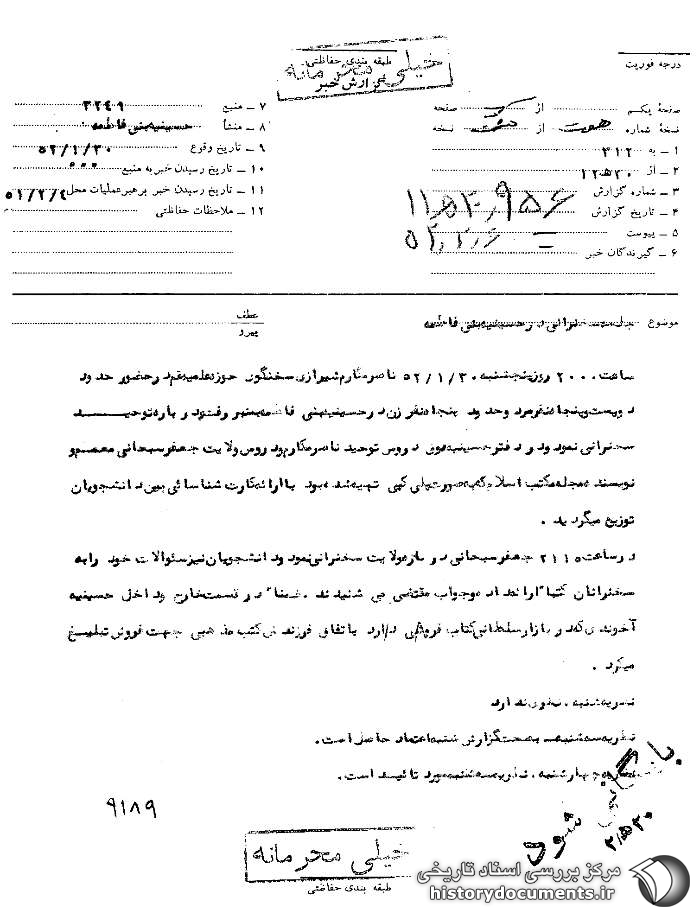 درجه فوریت
طبقه بندی حفاظتی
خیلی محرمانه
گزارش خبر
صفحهٔ یکم از یک صفحه
نسخهٔ شماره هفت از هفت نسخه
۱ ـ به ۳۱۲
۲ ـ از ۱۲ ه‍ ۲۰
۳ ـ شماره گزارش
۴ ـ تاریخ گزارش
۵ ـ پیوست
۶ ـ گیرندگان خبر
۷ ـ منبع ۳۲۴۹
۸ ـ منشأ حسینیه بنی فاطمه
۹ ـ تاریخ وقوع ۵۲/۱/۳۰
۱۰ ـ تاریخ رسیدن خبر به منبع
۱۱ ـ تاریخ رسیدن خبر برهبر عملیات محل ۵۱/۲/۴
۱۲ ـ ملاحظات حفاظتی
عطف
پیرو
موضوع جلسه سخنرانی در حسینیه بنی فاطمه
ساعت ۲۰۰۰ روز پنجشنبه ۵۲/۱/۳۰ ناصر مکارم شیرازی سخنگوی حوزه علمیه قم در حضور حدود
دویست و پنجاه نفر مرد و حدود پنجاه نفر زن در حسینیه بنی فاطمه بمنبر رفته و درباره توحید
سخنرانی نمود و در دفتر حسینیه فوق دروس توحید ناصر مکارم و دروس ولایت جعفر سبحانی معمم و
نویسنده مجله مکتب اسلام که بصورت پلی کپی تهیه شده بود با ارائه کارت شناسائی بین دانشجویان
توزیع میگردید .
در ساعت ۲۱۱۵ جعفر سبحانی درباره ولایت سخنرانی نمود و دانشجویان نیز سئوالات خود را به
سخنرانان کتباً ارائه داده و جواب مقتضی می شنیدند . ضمناً در قسمت خارج و داخل حسینیه
آخوندی که در بازار سلطانی کتاب فروشی دارد باتفاق فرزندش کتب مذهبی جهت فروش تبلیغ
میکرد .
نظریه شنبه . نظری ندارد
نظریه سه شنبه . بصحت گزارش شنبه اعتماد حاصل است .
نظریه چهارشنبه . نظریه سه شنبه مورد تائید است .
بایگانی شود
۹۱۸۹
خیلی محرمانه
طبقه بندی حفاظتی
مرکز بررسی اسناد تاریخی
historydocuments.ir